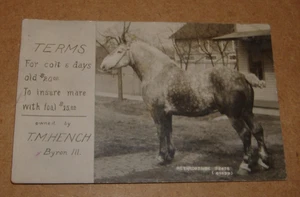 TERMS
For colt 4 days
old $20.00
To insure mare
with foal $22.00
OWNED BY
T.M. HENCH
of Byron Ill.